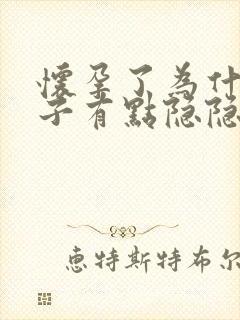 懷孕了為什
子有點隐隐
惠特斯特布尔